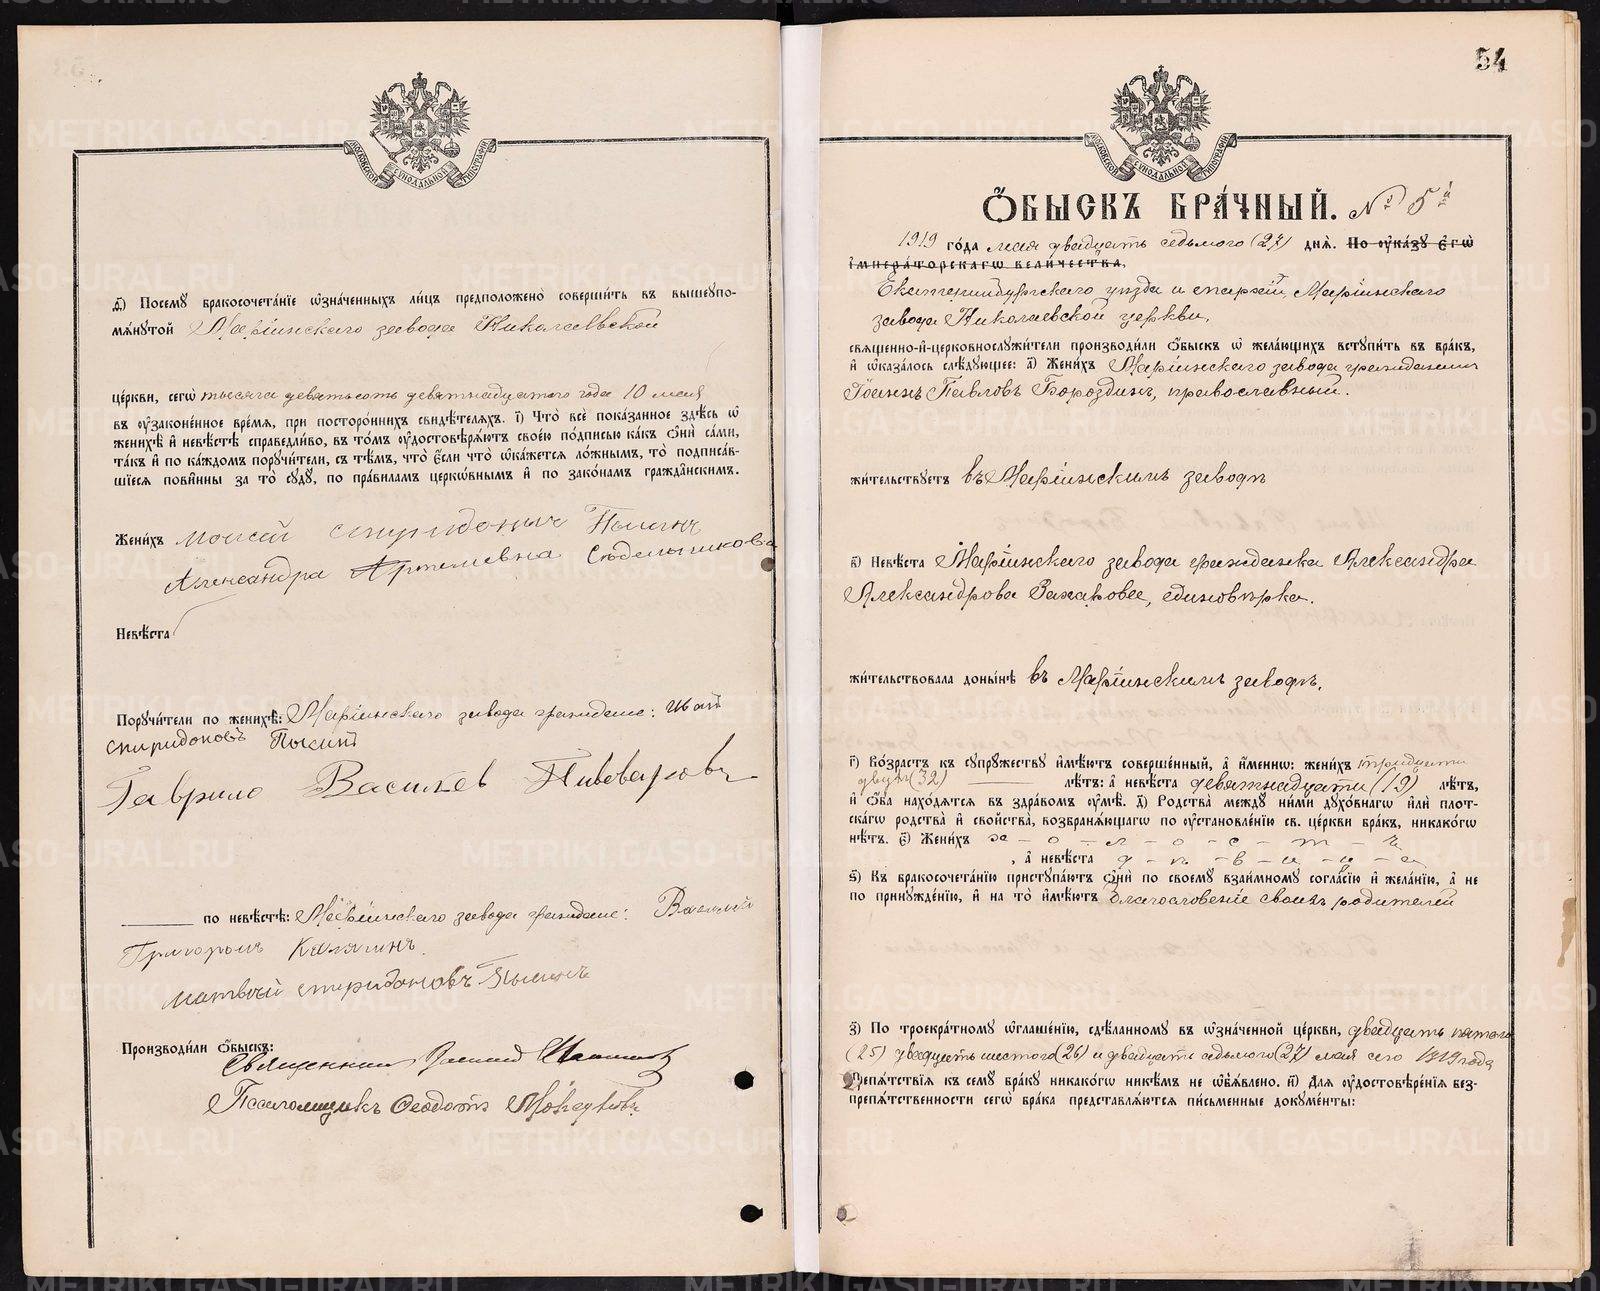 МОСКОВСКОЙ СѴНОДАЛЬНОЙ ТИПОГРАФІИ
ѳ҃) Посемꙋ бракосочета́нїе ѡ҆зна́ченныхъ ли́цъ предположено̀ соверши́ть въ вышеꙋпо-
мѧ́нꙋтой Маріинскаго завода Николаевской
це́ркви, сегѡ̀ тысяча девятьсотъ девятнадцатого года 10 мая
въ ᲂу҆зако́ненное вре́мѧ, при посторо́ннихъ свидѣ́телѧхъ. і҃) Что̀ всѐ пока́занное здѣ́сь ѡ҆
женихѣ̀ и҆ невѣ́стѣ справедли́во, въ то́мъ ᲂу҆достовѣрѧ́ютъ свое́ю по́дписью ка́къ ѻ҆нѝ са́ми,
та́къ и҆ по ка́ждомъ порꙋчи́тели, съ тѣ́мъ, что̀ є҆́сли что̀ ѡ҆ка́жетсѧ ло́жнымъ, то̀ подписа́в-
шїесѧ пови́нны за то̀ сꙋдꙋ̀, по пра́виламъ церко́внымъ и҆ по зако́намъ гражда́нскимъ.
Жени́хъ Моисей Спиридоныч Пысинъ
Александра Артемевна Седельникова
Невѣ́ста
Порꙋчи́тели по женихѣ̀: Маріинскаго завода граждане: Иван
Спиридоновъ Пысин
Гаврило Василев Пивоваров
по невѣ́стѣ: Маріинскаго завода граждане: Василий
Григором Калягинъ.
Матвѣй Спиридоновъ Пысинъ
Производи́ли ѻ҆́быскъ:
Священник Василий
Псаломщикъ Феодотъ
54
МОСКОВСКОЙ СѴНОДАЛЬНОЙ ТИПОГРАФІИ
Ѻ҆́БЫСКЪ БРА́ЧНЫЙ. № 5й
1919 го́да мая двадцать седьмого (27) днѧ̀. По ᲂу҆ка́зꙋ Є҆гѡ̀
И҆мпера́торскагѡ вели́чества,
Екатеринбургскаго уезда и епархіи, Маріинскаго
завода Николаевской церкви,
свѧщенно-и҆-церковнослꙋжи́тели производи́ли ѻ҆́быскъ ѡ҆ жела́ющихъ встꙋпи́ть въ бра́къ,
и҆ ѡ҆каза́лось слѣ́дꙋющее: а҃) Жени́хъ Маріинскаго завода гражданин
Іоаннъ Павловъ Бороздинъ, православный.
жи́тельствꙋетъ въ Маріинскимъ заводѣ
в҃) Невѣ́ста Маріинскаго завода гражданка Александра
Александрова Захарова, единоверка.
жи́тельствовала доны́нѣ въ Маріинскимъ заводѣ.
г҃) Во́зрастъ къ сꙋпрꙋ́жествꙋ и҆мѣ́ютъ соверше́нный, а҆ и҆́менно: жени́хъ тридцати
двухъ (32) лѣ́тъ: а҆ невѣ́ста девятнадцати (19) лѣ́тъ,
и҆ ѻ҆́ба нахо́дѧтсѧ въ здра́вомъ ᲂу҆мѣ̀. д҃) Родства̀ междꙋ ни́ми дꙋхо́внагѡ и҆лѝ плот-
ска́гѡ родства̀ и҆ сво́йства, возбранѧ́ющагѡ по ᲂу҆становле́нїю св. це́ркви бра́къ, никако́гѡ
нѣ́тъ. є҃) Жени́хъ х-о-л-о-с-т-ъ
, а҆ невѣ́ста д-ѣ-в-и-ц-а
ѕ҃) Къ бракосочета́нїю пристꙋпа́ютъ ѻ҆нѝ по своемꙋ̀ взаи́мномꙋ согла́сїю и҆ жела́нїю, а҆ не
по принꙋжде́нїю, и҆ на то̀ и҆мѣ́ютъ благословеніе своихъ родителей
з҃) По троекра́тномꙋ ѡ҆глаше́нїю, сдѣ́ланномꙋ въ ѡ҆зна́ченной це́ркви, двадцать пятого
(25) двадцать шестого (26) и двадцать седьмого (27) мая сего 1919 года
препѧ́тствїѧ къ семꙋ̀ бра́кꙋ никако́гѡ никѣ́мъ не ѡ҆б̾ѧ́влено. и҃) Для ᲂу҆достовѣре́нїѧ без-
препѧ́тственности сегѡ̀ бра́ка представлѧ́ютсѧ пи́сьменные докꙋме́нты: